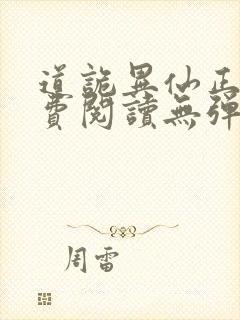 道詭異仙正
費閱讀無彈
周雷